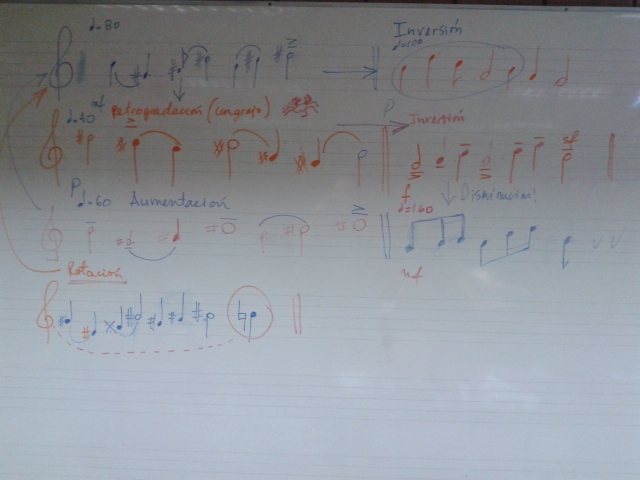 ♩=80
Inversión
♩=100
♩=40 mf Retrogradación (Cangrejo)
P
Inversión
sf
P
♩=60 Aumentación
f
♩=160
Disminución
mf
Rotación